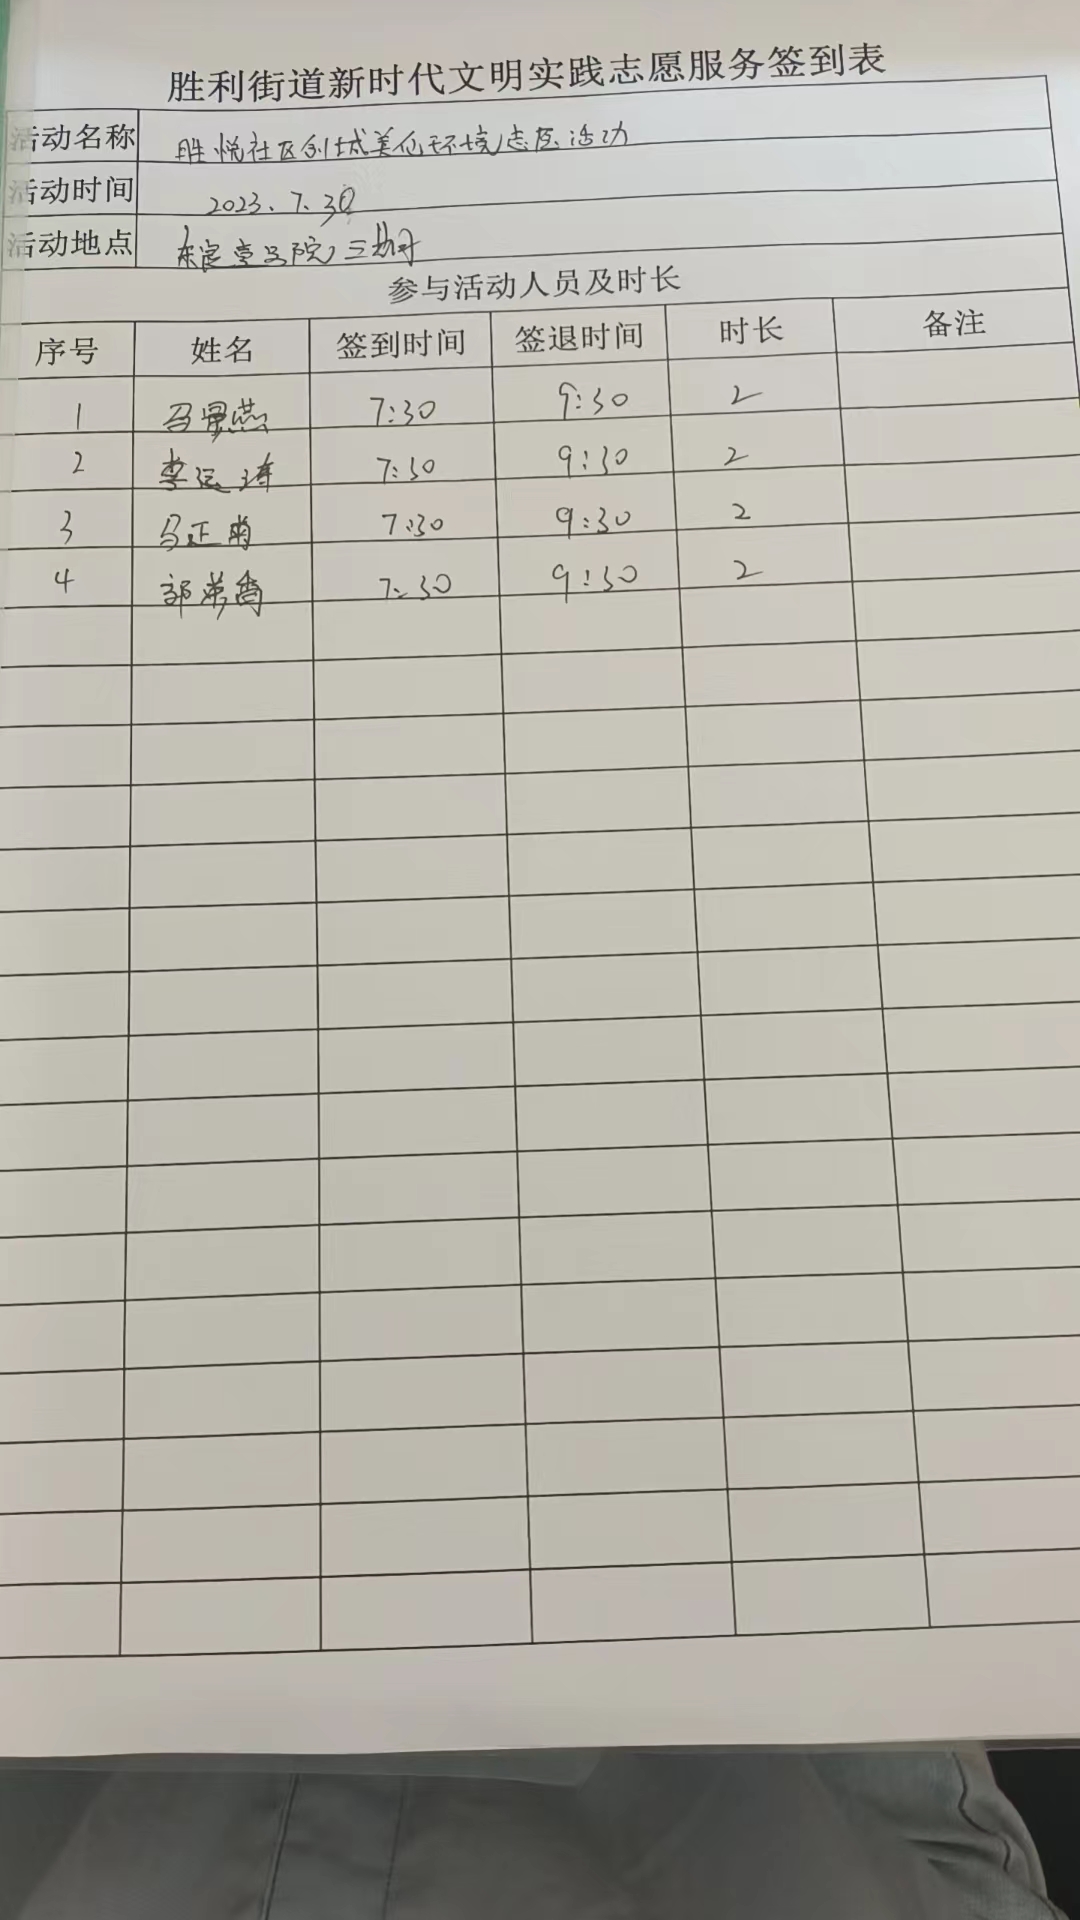 胜利街道新时代文明实践志愿服务签到表
活动名称 胜悦社区创城美化环境志愿活动
活动时间 2023.7.30
活动地点
参与活动人员及时长
序号 姓名 签到时间 签退时间 时长 备注
1 马景燕 7:30 9:30 2
2 李运 7:30 9:30 2
3 马正 7:30 9:30 2
4 郭 7:30 9:30 2